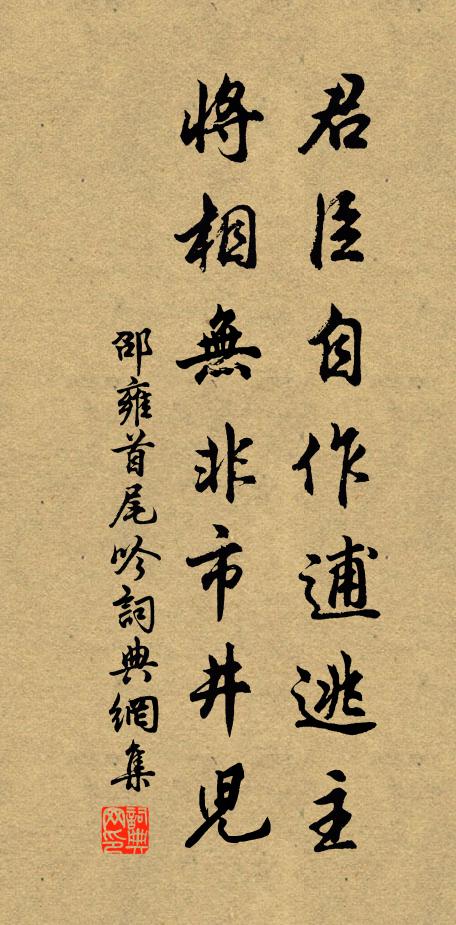 君臣自作逋逃主
將相無非市井兒
邵雍首尾吟詞典網集
詞典網印